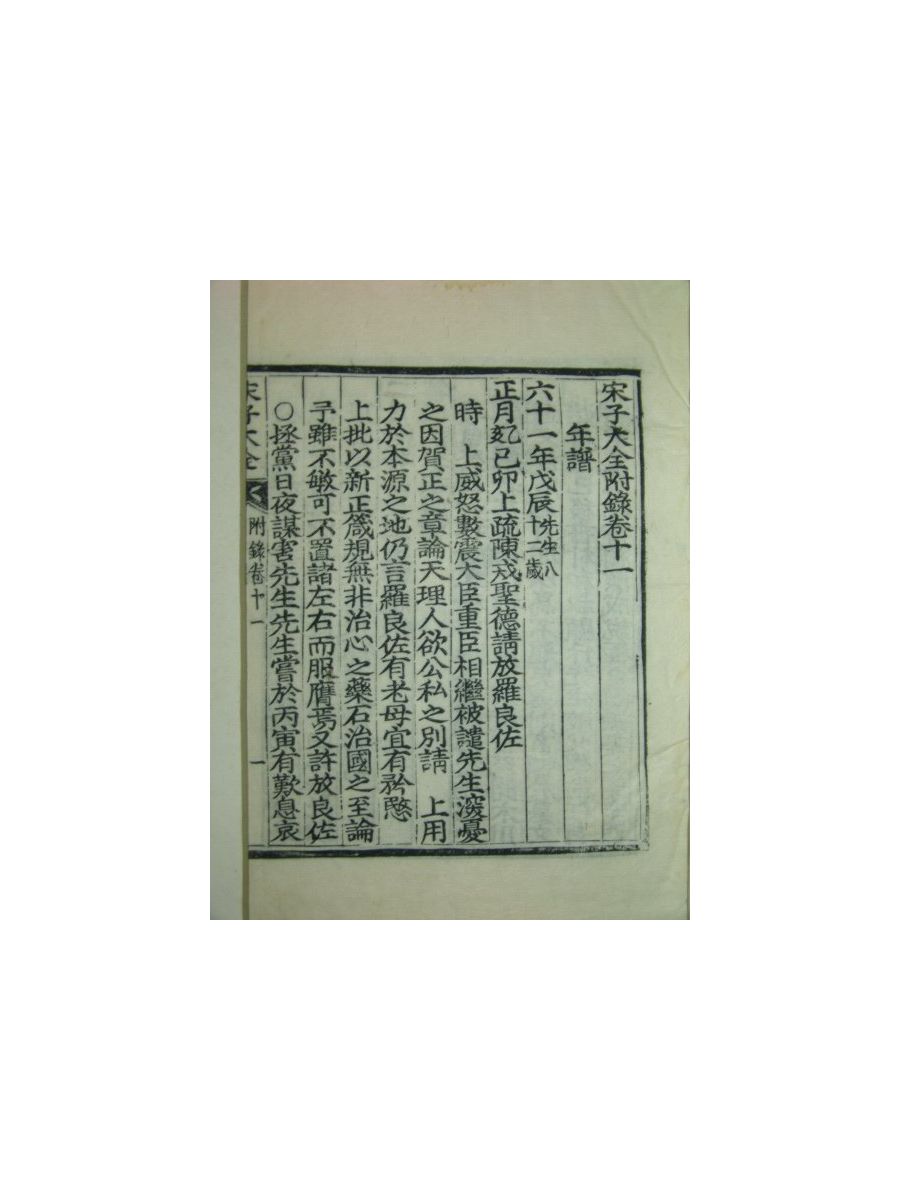 宋子大全附錄卷十一
年譜
六十一年戊辰先生八十二歲
正月己卯上疏陳戒聖德請放羅良佐
時 上威怒數震大臣重臣相繼被譴先生深憂
之因賀正之章論天理人欲公私之別請 上用
力於本源之地仍言羅良佐有老母宜有矜愍
上批以新正箴規無非治心之藥石治國之至論
予雖不敏可不置諸左右而服膺焉又許放良佐
○拯黨日夜謀害先生先生嘗於丙寅有歎息哀
宋子大全 附錄卷十一 一